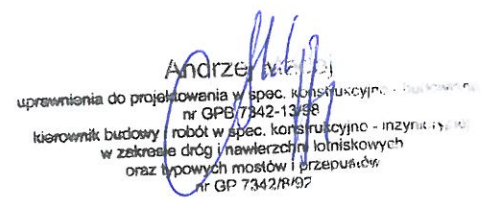 Andrzej
uprawnienia do projektowania w spec. konstrukcyjno -
nr GPB 7342-13/98
kierownik budowy i robót w spec. konstrukcyjno -
w zakresie dróg i nawierzchni lotniskowych
oraz typowych mostów i przepustów
nr GP 7342/8/92